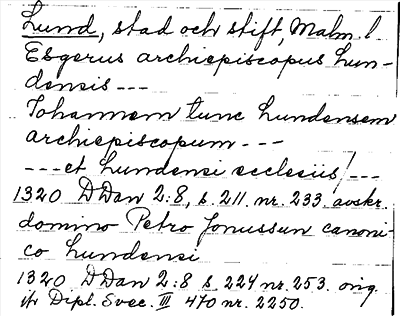 Lund, stad och stift, Malm. l
Esgerus archiepiscopus Lun-
densis ---
Johannem tunc Lundensem
archiepiscopum ---
--- et Lundensi ecclesiis/---
1320 DDan 2:8, s. 211. nr. 233. avskr.
domino Petro Jonussun canoni-
co Lundensi
1320 DDan 2:8 s. 224 nr. 253. orig.
jfr Dipl. Svec. III 470 nr. 2250.